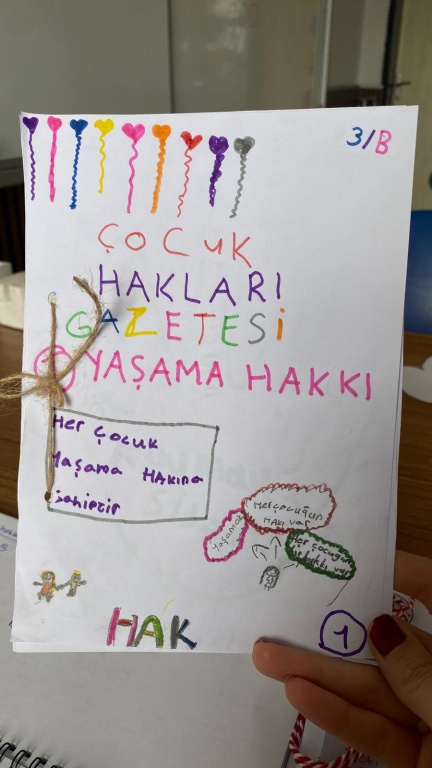 3/B
ÇOCUK
HAKLARI
GAZETESİ
YAŞAMA HAKKI
Her Çocuk
Yaşama HAKına
Sahiptir
Her çocuğun
HAKI var
Yaşamak
Her çocuğun
hakkı var
HAK
1